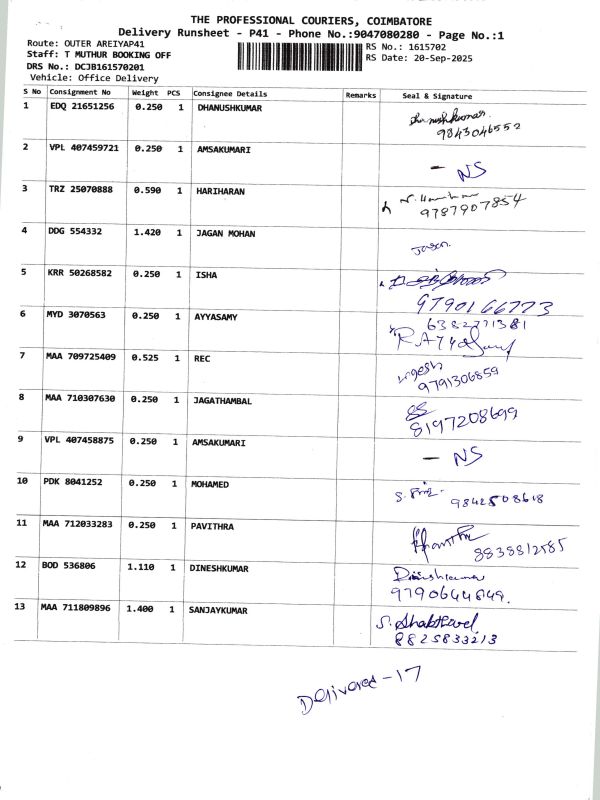 THE PROFESSIONAL COURIERS, COIMBATORE
Delivery Runsheet - P41 - Phone No.:9047080280 - Page No.:1
Route: OUTER AREIYAP41 RS No.: 1615702
Staff: T MUTHUR BOOKING OFF RS Date: 20-Sep-2025
DRS No.: DCJB161570201
Vehicle: Office Delivery
S No Consignment No Weight PCS Consignee Details Remarks Seal & Signature
1 EDQ 21651256 0.250 1 DHANUSHKUMAR Dhanushkumar
9843046552
2 VPL 407459721 0.250 1 AMSAKUMARI - NS
3 TRZ 25070888 0.590 1 HARIHARAN
9787907854
4 DDG 554332 1.420 1 JAGAN MOHAN
5 KRR 50268582 0.250 1 ISHA
9790166773
6 MYD 3070563 0.250 1 AYYASAMY 6382771381
7 MAA 709725409 0.525 1 REC
9791306859
8 MAA 710307630 0.250 1 JAGATHAMBAL
8197208699
9 VPL 407458875 0.250 1 AMSAKUMARI - NS
10 PDK 8041252 0.250 1 MOHAMED 9842508618
11 MAA 712033283 0.250 1 PAVITHRA
8838812585
12 BOD 536806 1.110 1 DINESHKUMAR Dineshkumar
9790644849.
13 MAA 711809896 1.400 1 SANJAYKUMAR S. Shakthivel
8825833213
Delivered - 17